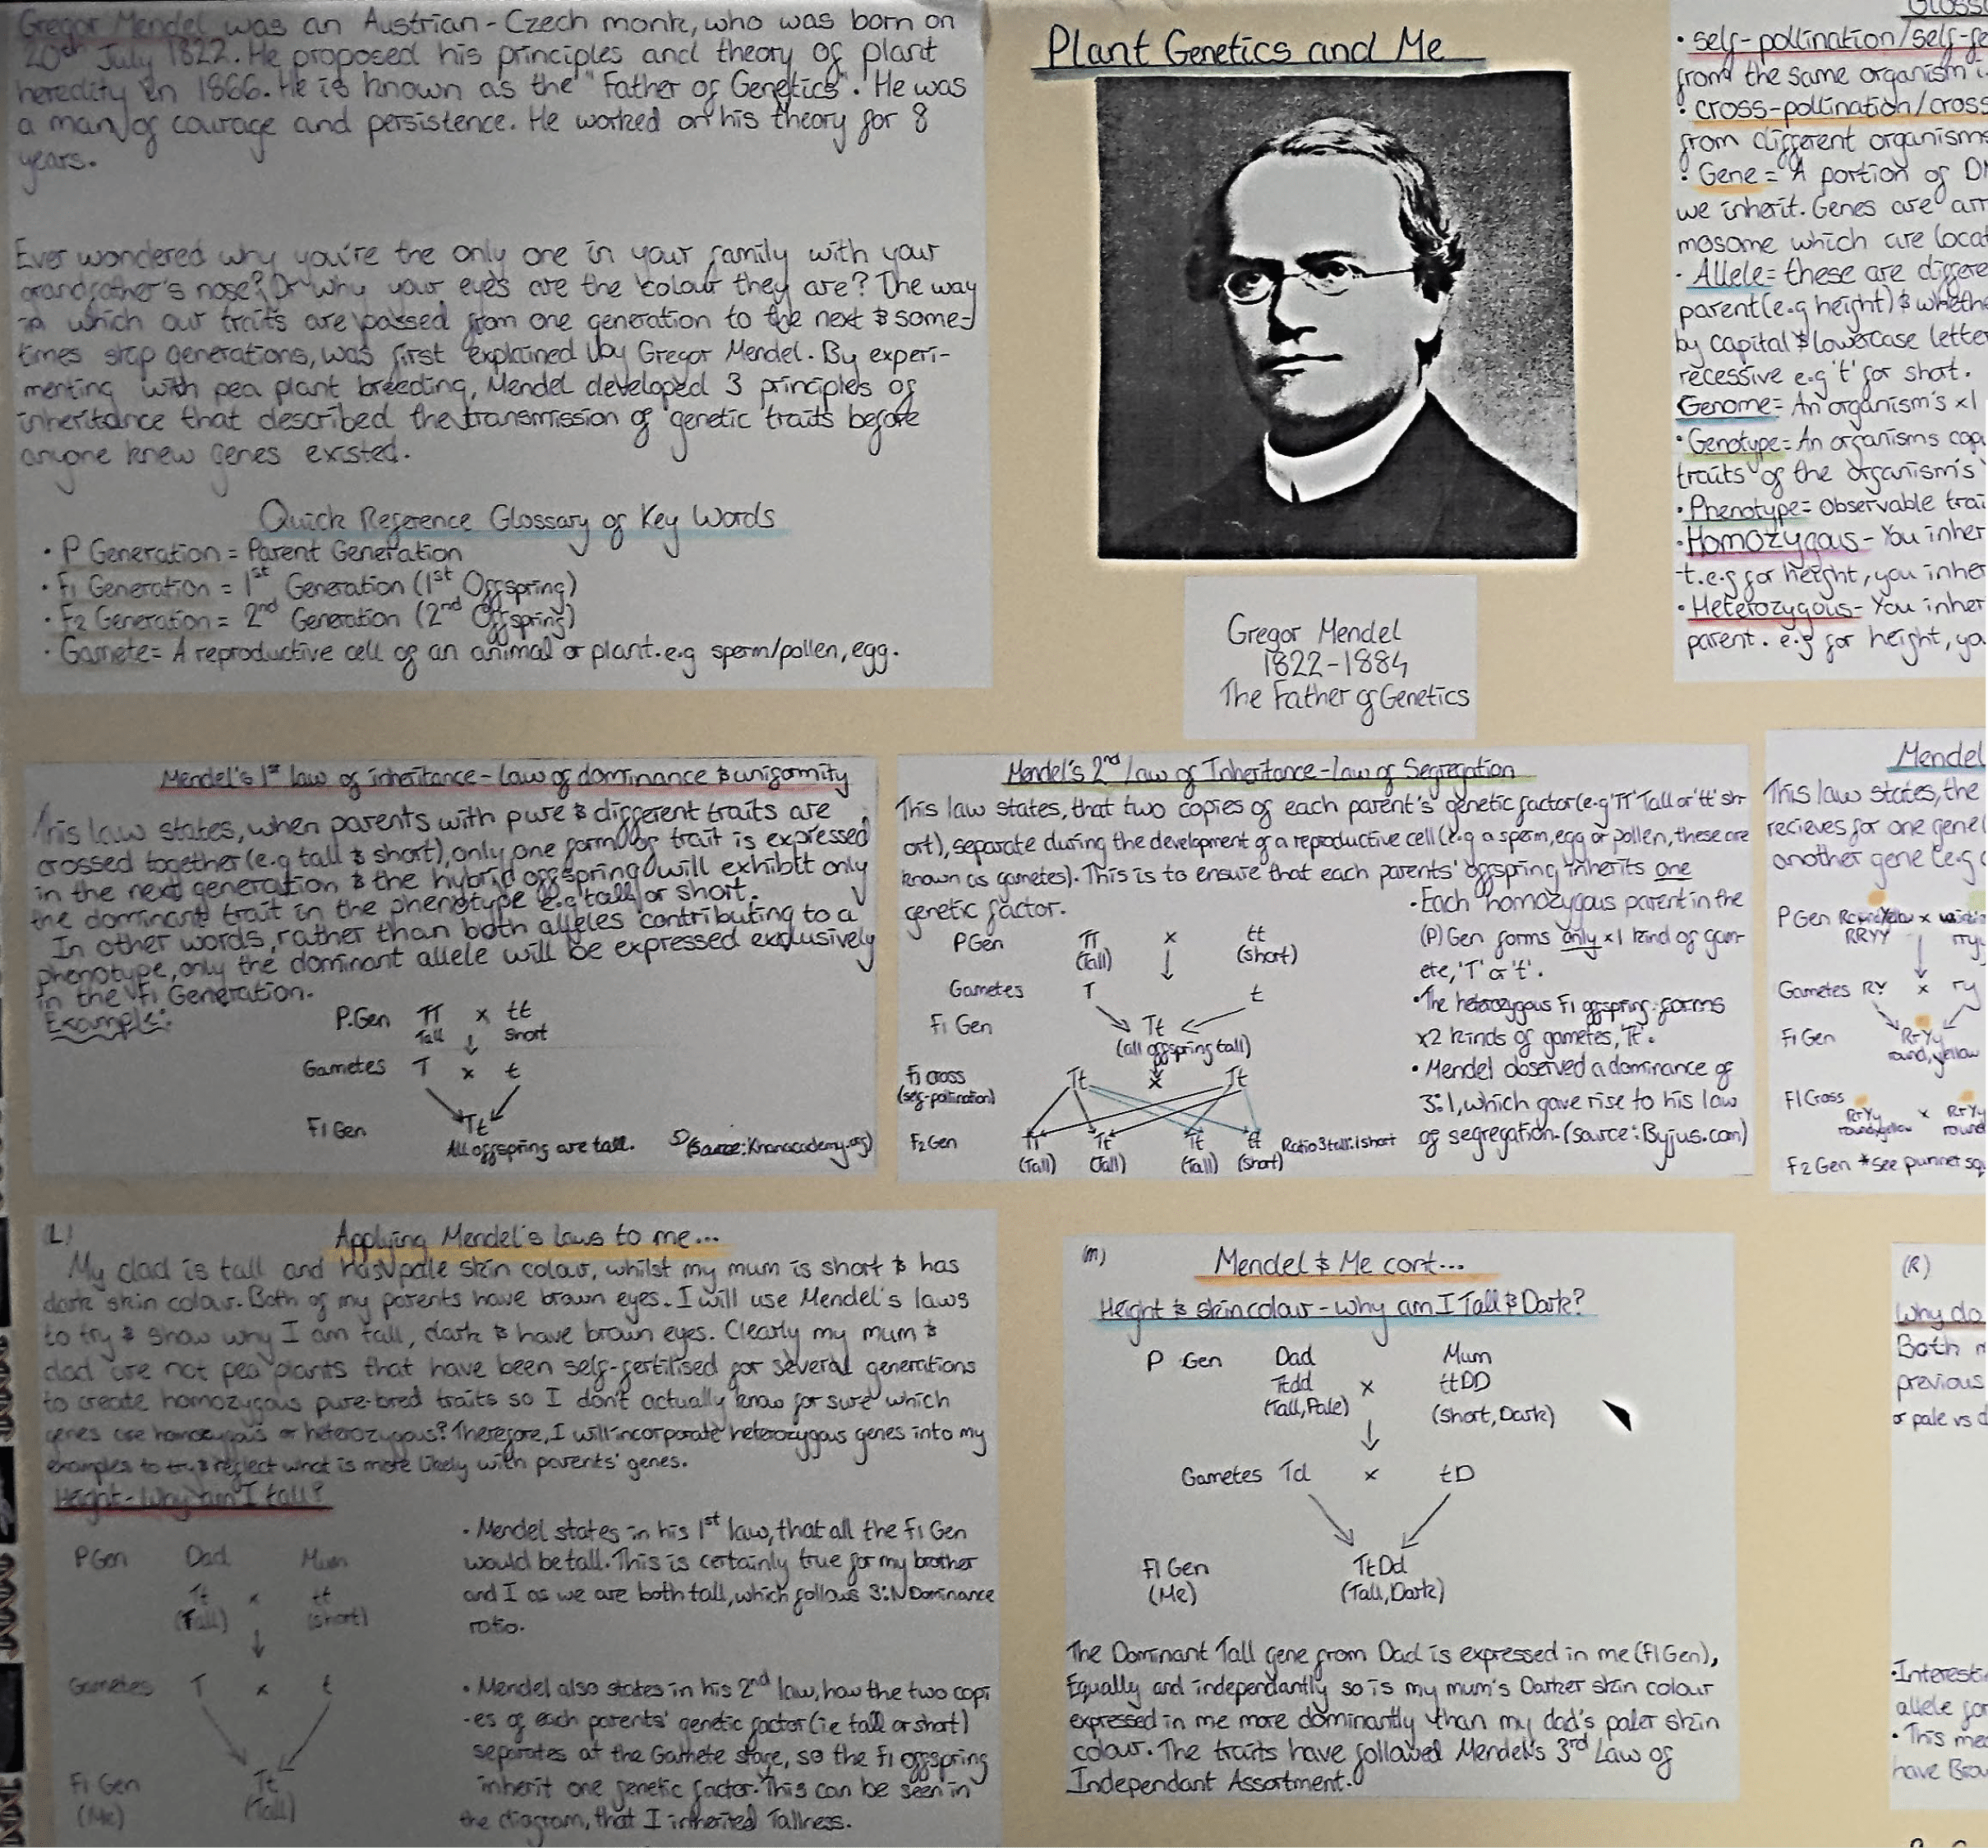 Gregor Mendel was an Austrian-Czech monk, who was born on
20th July 1822. He proposed his principles and theory of plant
heredity in 1866. He is known as the "Father of Genetics". He was
a man of courage and persistence. He worked on his theory for 8
years.
Ever wondered why you're the only one in your family with your
grandfather's nose? Or why your eyes are the colour they are? The way
in which our traits are passed from one generation to the next & some-
times skip generations, was first explained by Gregor Mendel. By experi-
menting with pea plant breeding, Mendel developed 3 principles of
inheritance that described the transmission of genetic traits before
anyone knew genes existed.
Quick Reference Glossary of Key Words
• P Generation = Parent Generation
• F1 Generation = 1st Generation (1st Offspring)
• F2 Generation = 2nd Generation (2nd Offspring)
• Gamete = A reproductive cell of an animal or plant. e.g sperm/pollen, egg.
Plant Genetics and Me
Gregor Mendel
1822-1884
The Father of Genetics
• self-pollination/self-fe
from the same organism i.
• cross-pollination/cross
from different organisms
• Gene = A portion of DN
we inherit. Genes are arr
mosome which are locat
• Allele = these are differe
parent (e.g height) & whethe
by capital & lowercase letter
recessive e.g 't' for short.
Genome = An organism's x1
• Genotype = An organisms cop
traits of the organism's
• Phenotype = Observable trai
• Homozygous - You inher
t. e.g for height, you inhe
• Heterozygous - You inher
parent. e.g for height, yo
Mendel's 1st law of inheritance - law of dominance & uniformity
This law states, when parents with pure & different traits are
crossed together (e.g tall & short), only one form of trait is expressed
in the next generation & the hybrid offspring will exhibit only
the dominant trait in the phenotype e.g tall or short.
In other words, rather than both alleles contributing to a
phenotype, only the dominant allele will be expressed exclusively
in the F1 Generation.
Example:
P.Gen TT x tt
Tall short
Gametes T x t
F1 Gen Tt
All offspring are tall. (Source: Khanacademy.org)
Mendel's 2nd law of Inheritance - law of Segregation
This law states, that two copies of each parent's genetic factor (e.g 'TT' Tall or 'tt' sh-
ort), separate during the development of a reproductive cell (e.g a sperm, egg or pollen, these are
known as gametes). This is to ensure that each parents' offspring inherits one
genetic factor.
P Gen TT x tt
(Tall) (short)
Gametes T t
F1 Gen Tt
(all offspring tall)
F1 cross Tt x Tt
(self-pollination)
F2 Gen TT Tt Tt tt Ratio 3 tall:1 short
(Tall) (Tall) (Tall) (short)
• Each homozygous parent in the
(P) Gen forms only x1 kind of gam-
ete, 'T' or 't'.
• The heterozygous F1 offspring forms
x2 kinds of gametes, 'Tt'.
• Mendel observed a dominance of
3:1, which gave rise to his law
of segregation. (source: Byjus.com)
Mendel
This law states, the
recieves for one gene
another gene (e.g
P Gen Round, Yellow x
RRYY rryy
Gametes RY x ry
F1 Gen RrYy
round, yellow
F1 Cross
RrYy x RrYy
round, yellow round
F2 Gen *See punnet sq
(L)
Applying Mendel's laws to me...
My dad is tall and has pale skin colour, whilst my mum is short & has
dark skin colour. Both of my parents have brown eyes. I will use Mendel's laws
to try & show why I am tall, dark & have brown eyes. Clearly my mum &
dad are not pea plants that have been self-fertilised for several generations
to create homozygous pure-bred traits so I don't actually know for sure which
genes are homozygous or heterozygous? Therefore, I will incorporate heterozygous genes into my
examples to try & reflect what is more likely with parents' genes.
Height - Why am I tall?
P Gen Dad Mum
Tt x tt
(Tall) (short)
Gametes T x t
F1 Gen Tt
(Me) (Tall)
• Mendel states in his 1st law, that all the F1 Gen
would be tall. This is certainly true for my brother
and I as we are both tall, which follows 3:1 Dominance
ratio.
• Mendel also states in his 2nd law, how the two copi
-es of each parents' genetic factor (ie tall or short)
separates at the Gamete stage, so the F1 offspring
inherit one genetic factor. This can be seen in
the diagram, that I inherited Tallness.
(M)
Mendel & Me cont...
Height & skin colour - why am I Tall & Dark?
P Gen Dad Mum
Ttdd x ttDD
(Tall, Pale) (short, Dark)
Gametes Td x tD
F1 Gen TtDd
(Me) (Tall, Dark)
The Dominant Tall gene from Dad is expressed in me (F1 Gen),
Equally and independantly so is my mum's Darker skin colour
expressed in me more dominantly than my dad's paler skin
colour. The traits have followed Mendel's 3rd Law of
Independant Assortment.
(R)
Why do
Both m
previous
or pale vs d
• Interesti
allele for
• This mea
have Brow